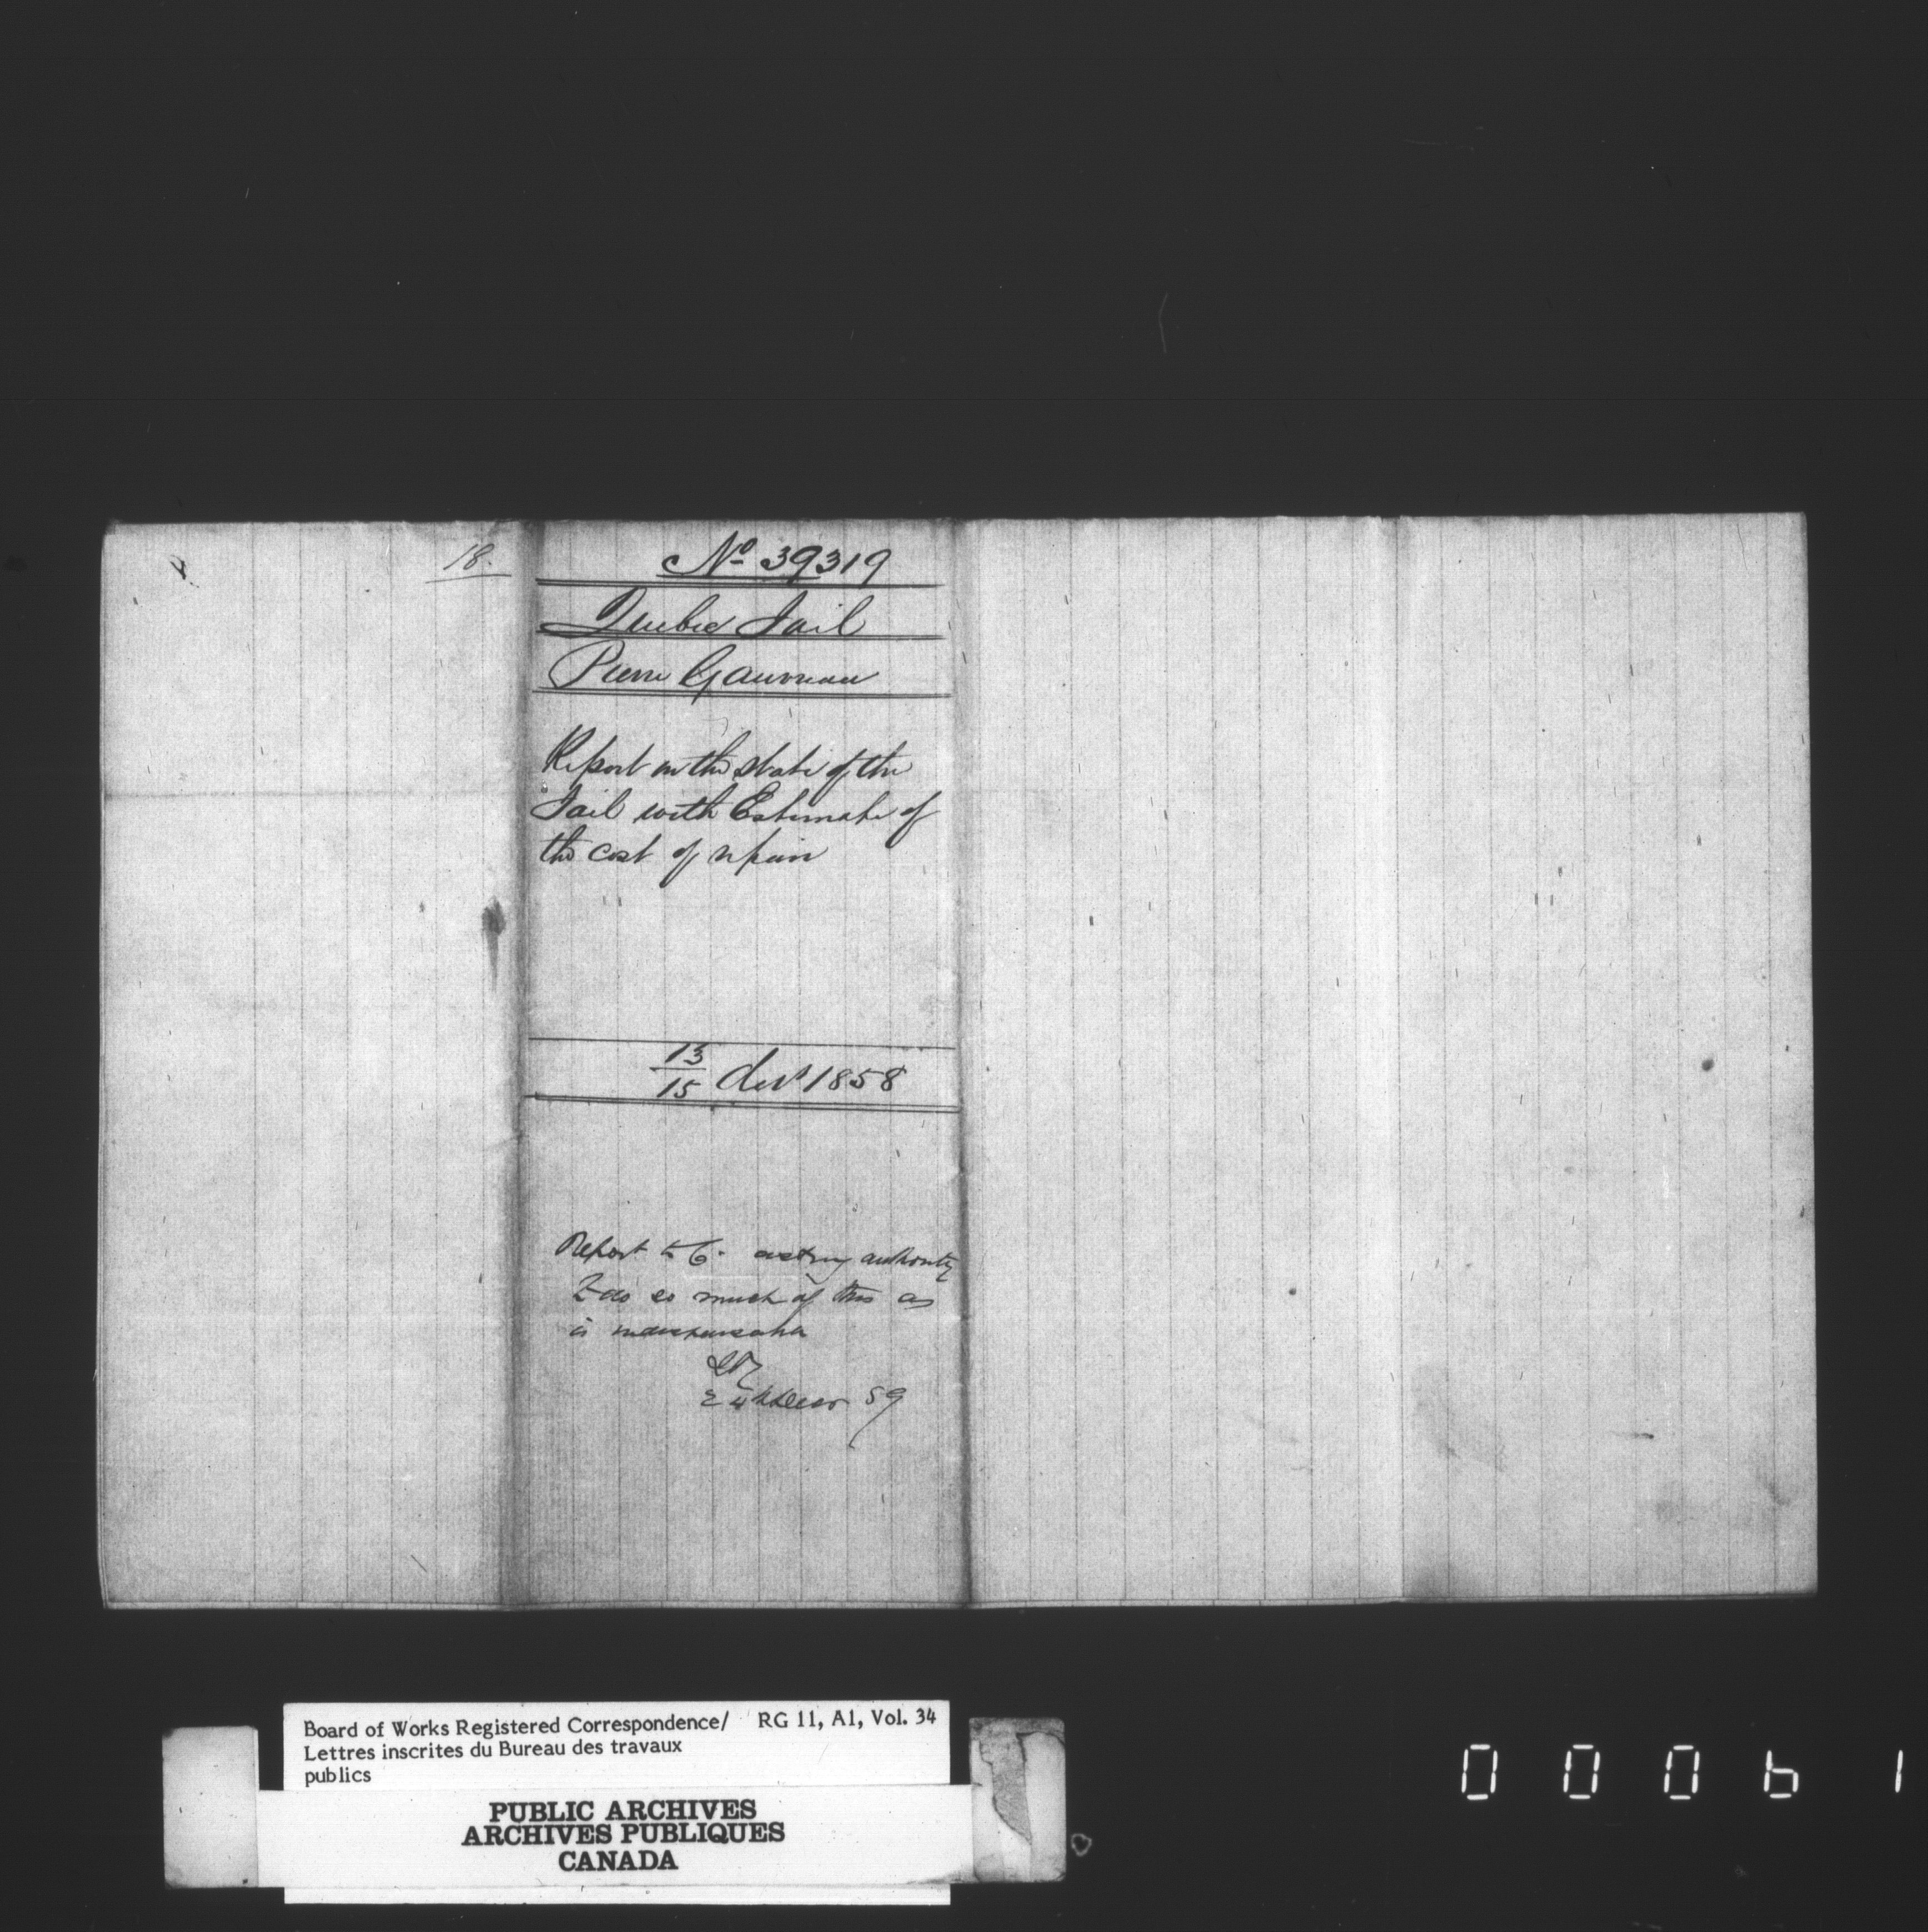 18.
No 39319
Quebec Jail
Pierre Gauvreau
Report on the state of the
Jail with Estimate of
the cost of repair
13
15 Decr 1858
Report to C. asking authority
to do so much of this as
is indispensable
24th Decr 59
Board of Works Registered Correspondence/ RG 11, A1, Vol. 34
Lettres inscrites du Bureau des travaux
publics
PUBLIC ARCHIVES
ARCHIVES PUBLIQUES
CANADA
00061